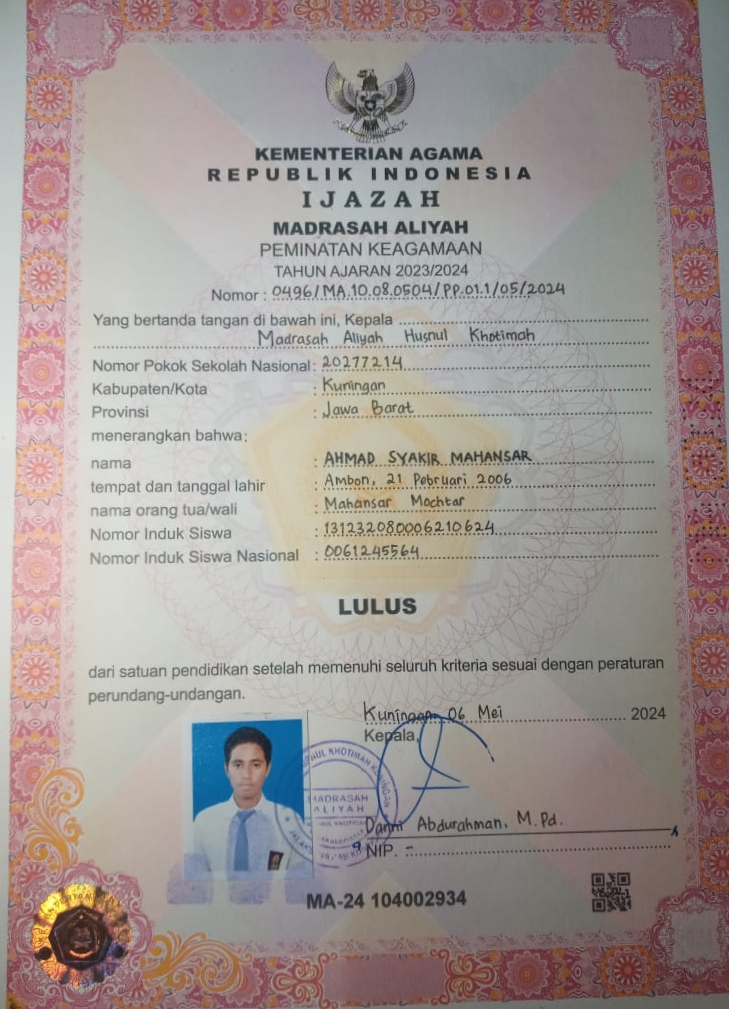 KEMENTERIAN AGAMA
REPUBLIK INDONESIA
IJAZAH
MADRASAH ALIYAH
PEMINATAN KEAGAMAAN
TAHUN AJARAN 2023/2024
Nomor : 0496/MA.10.08.0504/PP.01.1/05/2024
Yang bertanda tangan di bawah ini, Kepala
Madrasah Aliyah Husnul Khotimah
Nomor Pokok Sekolah Nasional : 20277214
Kabupaten/Kota : Kuningan
Provinsi : Jawa Barat
menerangkan bahwa:
nama : AHMAD SYAKIR MAHANSAR
tempat dan tanggal lahir : Ambon, 21 Pebruari 2006
nama orang tua/wali : Mahansar Mochtar
Nomor Induk Siswa : 131232080006210624
Nomor Induk Siswa Nasional : 0061245564
LULUS
dari satuan pendidikan setelah memenuhi seluruh kriteria sesuai dengan peraturan
perundang-undangan.
Kuningan, 06 Mei 2024
Kepala,
KHOTIMAH KUNINGAN
MADRASAH
ALIYAH
Danni Abdurahman, M.Pd.
NIP. -
MA-24 104002934